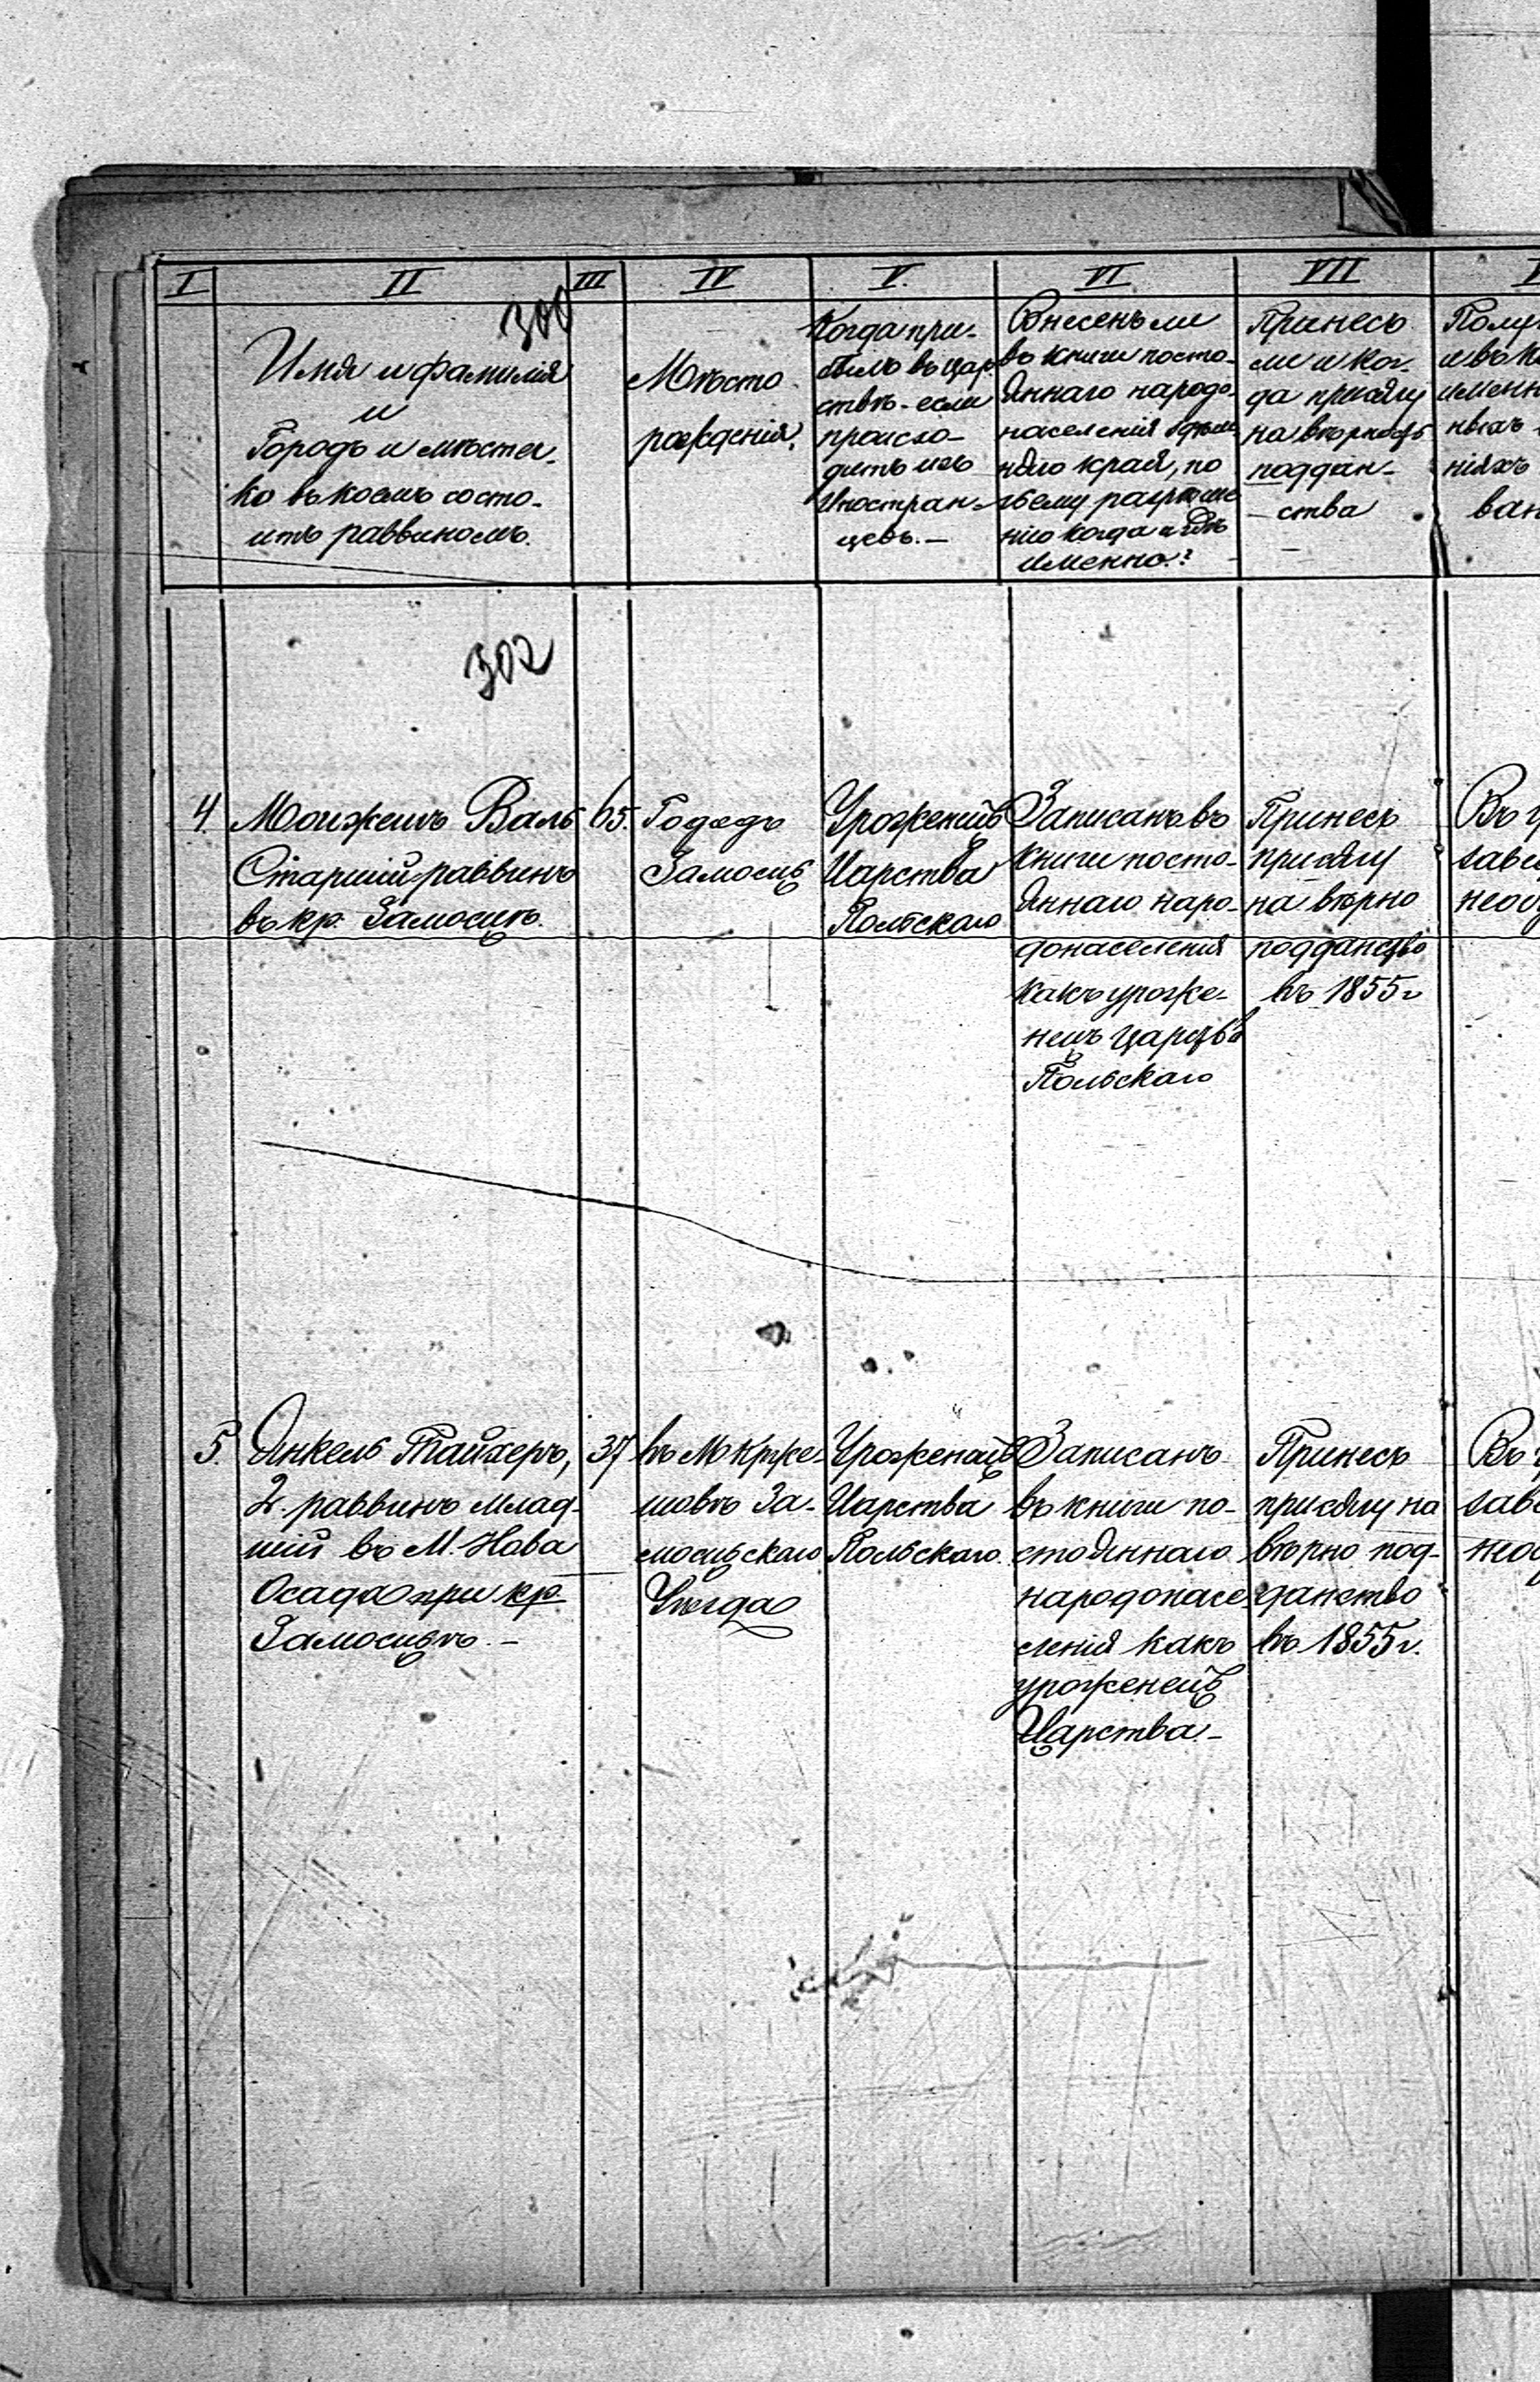 I II III IV V. VI VII
300
Имя и фамилія
и
Городъ и мѣстеч-
ко въ коемъ состо-
итъ раввиномъ.
Мѣсто
рожденія.
Когда при-
былъ въ Цар-
ствѣ - если
происхо-
дитъ изъ
Иностран-
цевъ. —
Внесенъ ли
въ книги посто-
яннаго народо-
населенія
края, по
чьему разрѣше
нію когда и гдѣ
именно?
Принесъ
ли и ког-
да присягу
на вѣрность
поддан-
- ства
Полу
и въ к
именн
ныхъ
ніяхъ
ван
302
4. Моижешъ Валь
Старшій раввинъ
въ кр. Замосцѣ.
65.
Городъ
Замосць
Уроженецъ
Царства
Польскаго
Записанъ въ
книги посто-
яннаго наро-
донаселенія
какъ уроже-
нецъ Царства
Польскаго
Принесъ
присягу
на вѣрно
подданство
въ 1855 г
Въ у
заве
неоу
5. Янкель Тайхеръ,
2й раввинъ млад-
шій въ М. Нова
Осада при кр.
Замосцьѣ. —
37
въ М Крже-
шовѣ За-
мосцьскаго
Уѣзда
Уроженецъ
Царства
Польскаго.
Записанъ
въ книги по-
стояннаго
народонасе-
ленія какъ
уроженецъ
Царства. —
Принесъ
присягу на
вѣрно под-
данство
въ 1855 г.
Въ у
заве
неоу